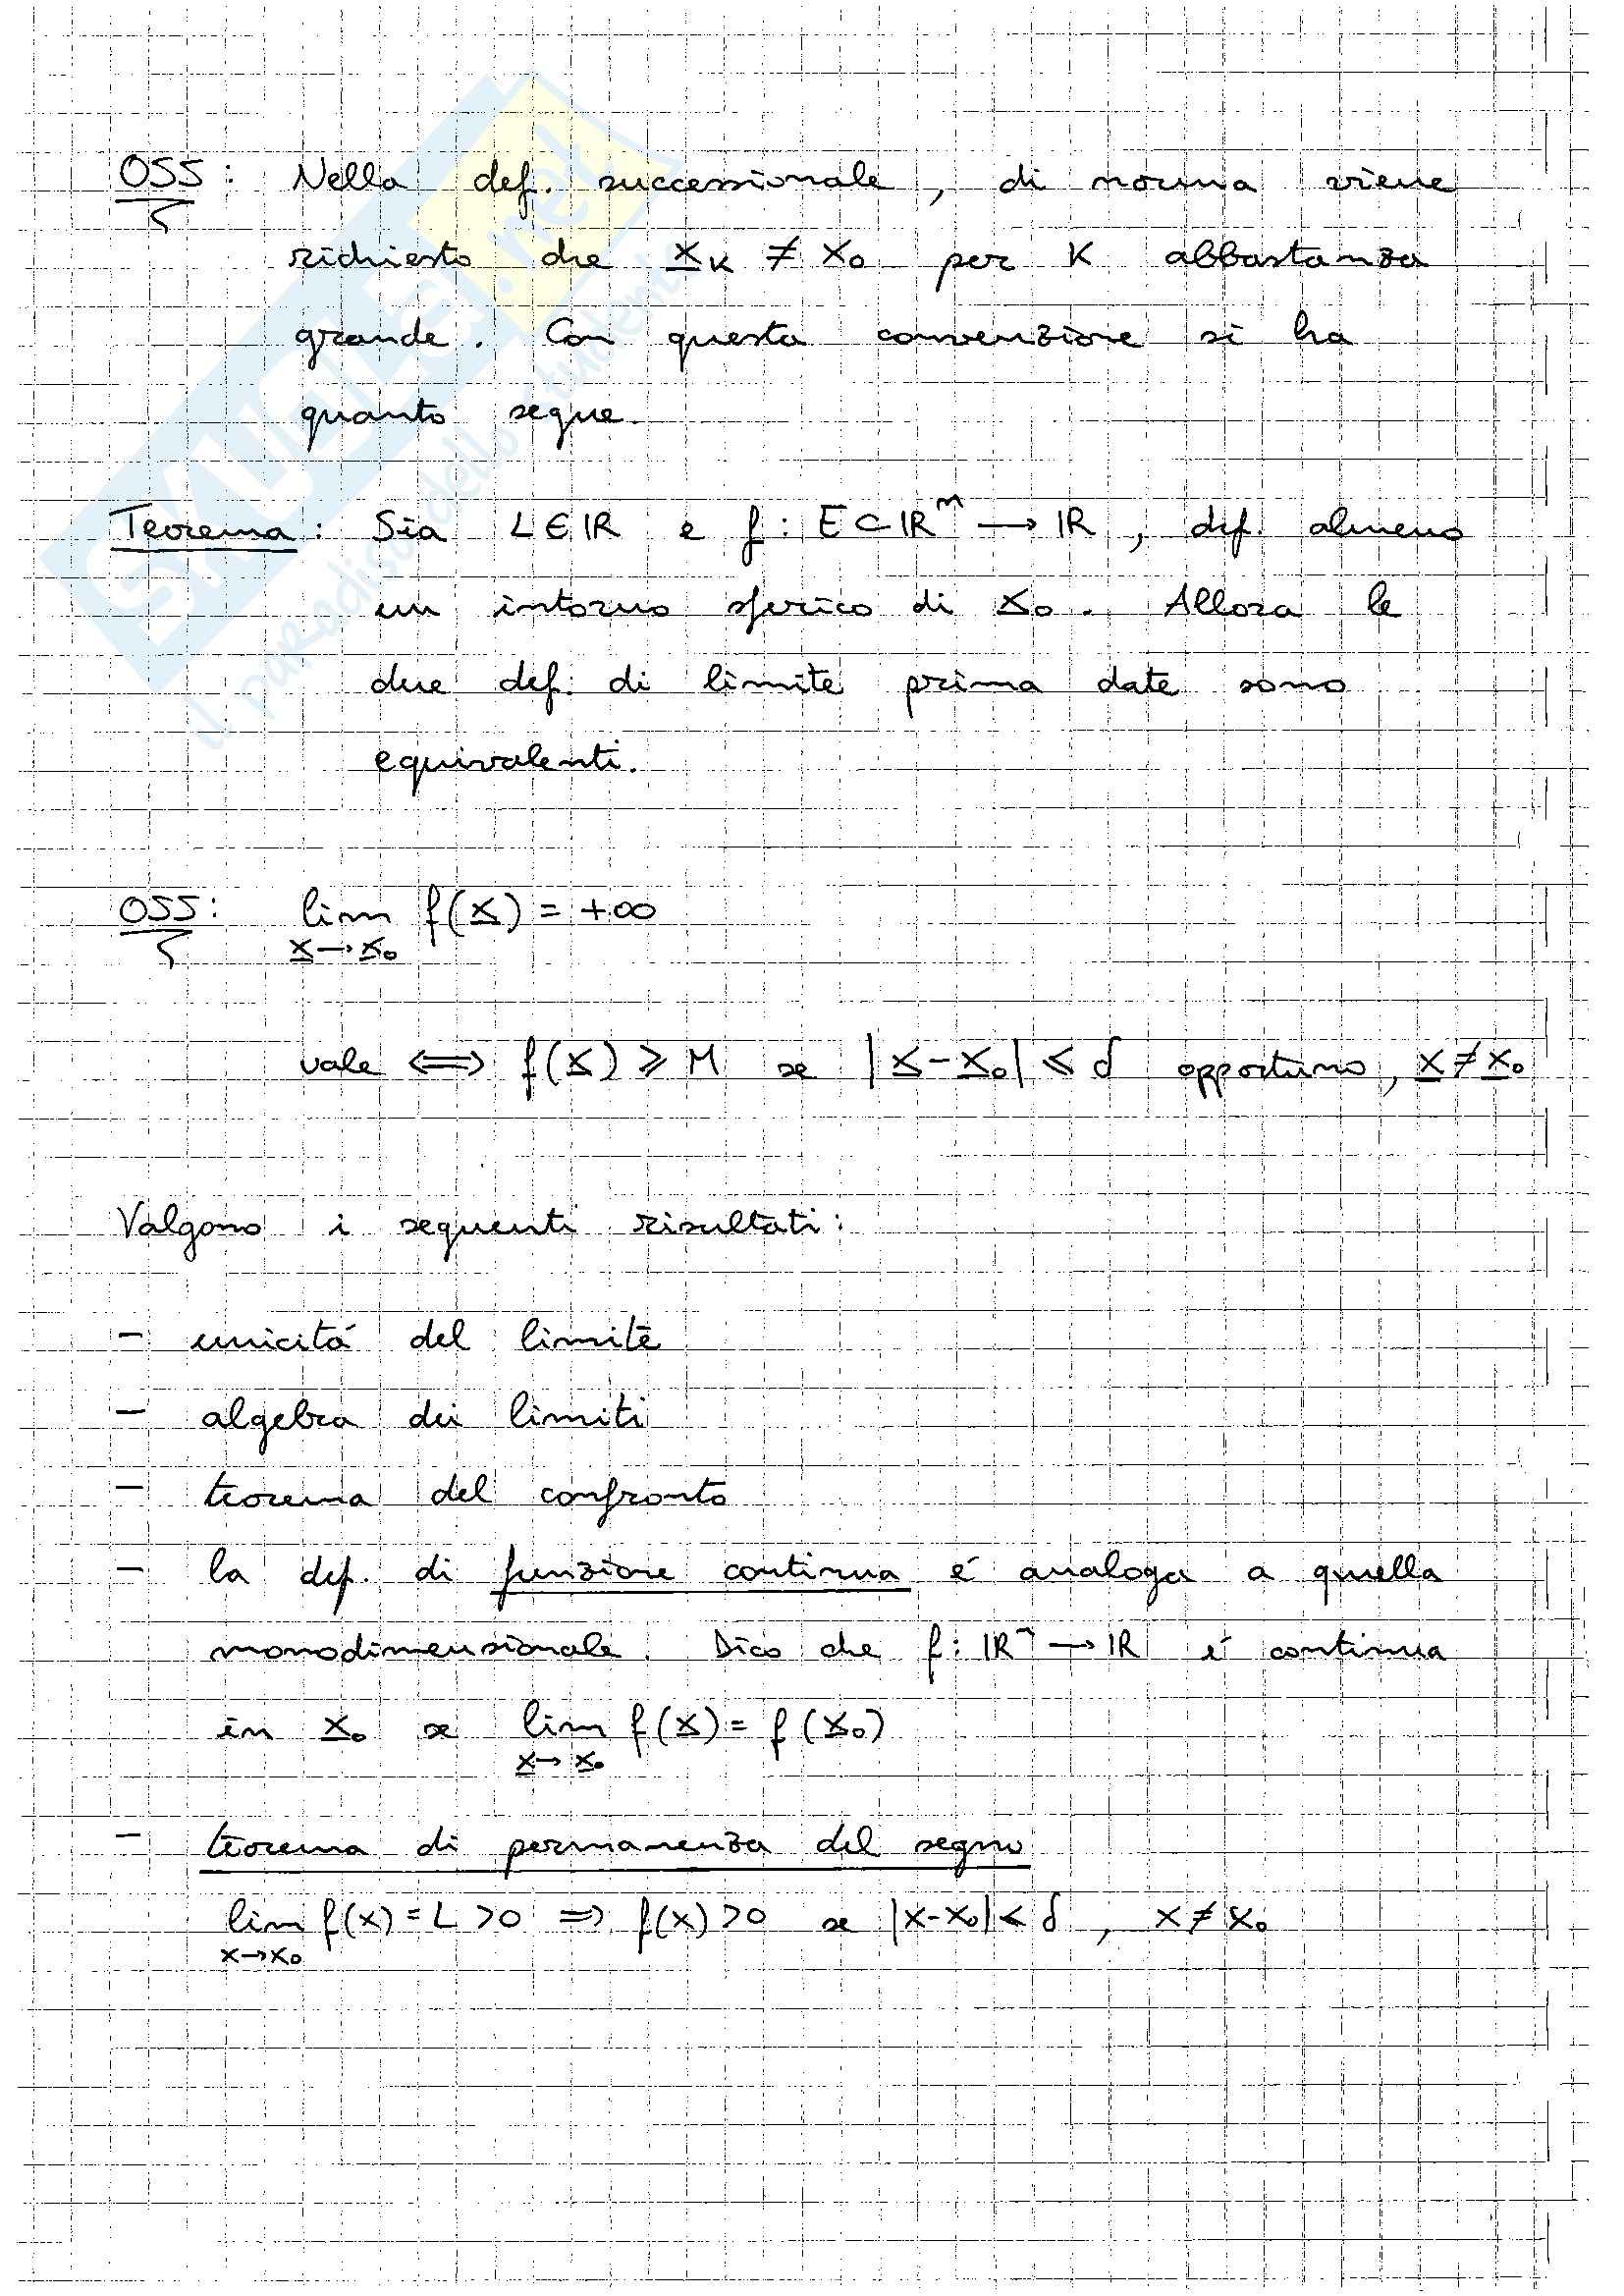 OSS: Nella def. successionale, di norma viene
richiesto che x_k ≠ x_0 per k abbastanza
grande. Con questa convenzione si ha
quanto segue.
Teorema: Sia L ∈ ℝ e f: E ⊂ ℝ^n → ℝ, def. almeno
un intorno sferico di x_0. Allora le
due def. di limite prima date sono
equivalenti.
OSS: lim f(x) = +∞
x → x_0
vale ⟺ f(x) ≥ M se |x - x_0| ≤ δ opportuno, x ≠ x_0
Valgono i seguenti risultati:
- unicitá del limite
- algebra dei limiti
- teorema del confronto
- la def. di funzione continua é analoga a quella
monodimensionale. Dico che f: ℝ^n → ℝ é continua
in x_0 se lim f(x) = f(x_0)
x → x_0
- teorema di permanenza del segno
lim f(x) = L > 0 ⇒ f(x) > 0 se |x - x_0| < δ, x ≠ x_0
x → x_0
SKUOLA.net
il paradiso dello studente